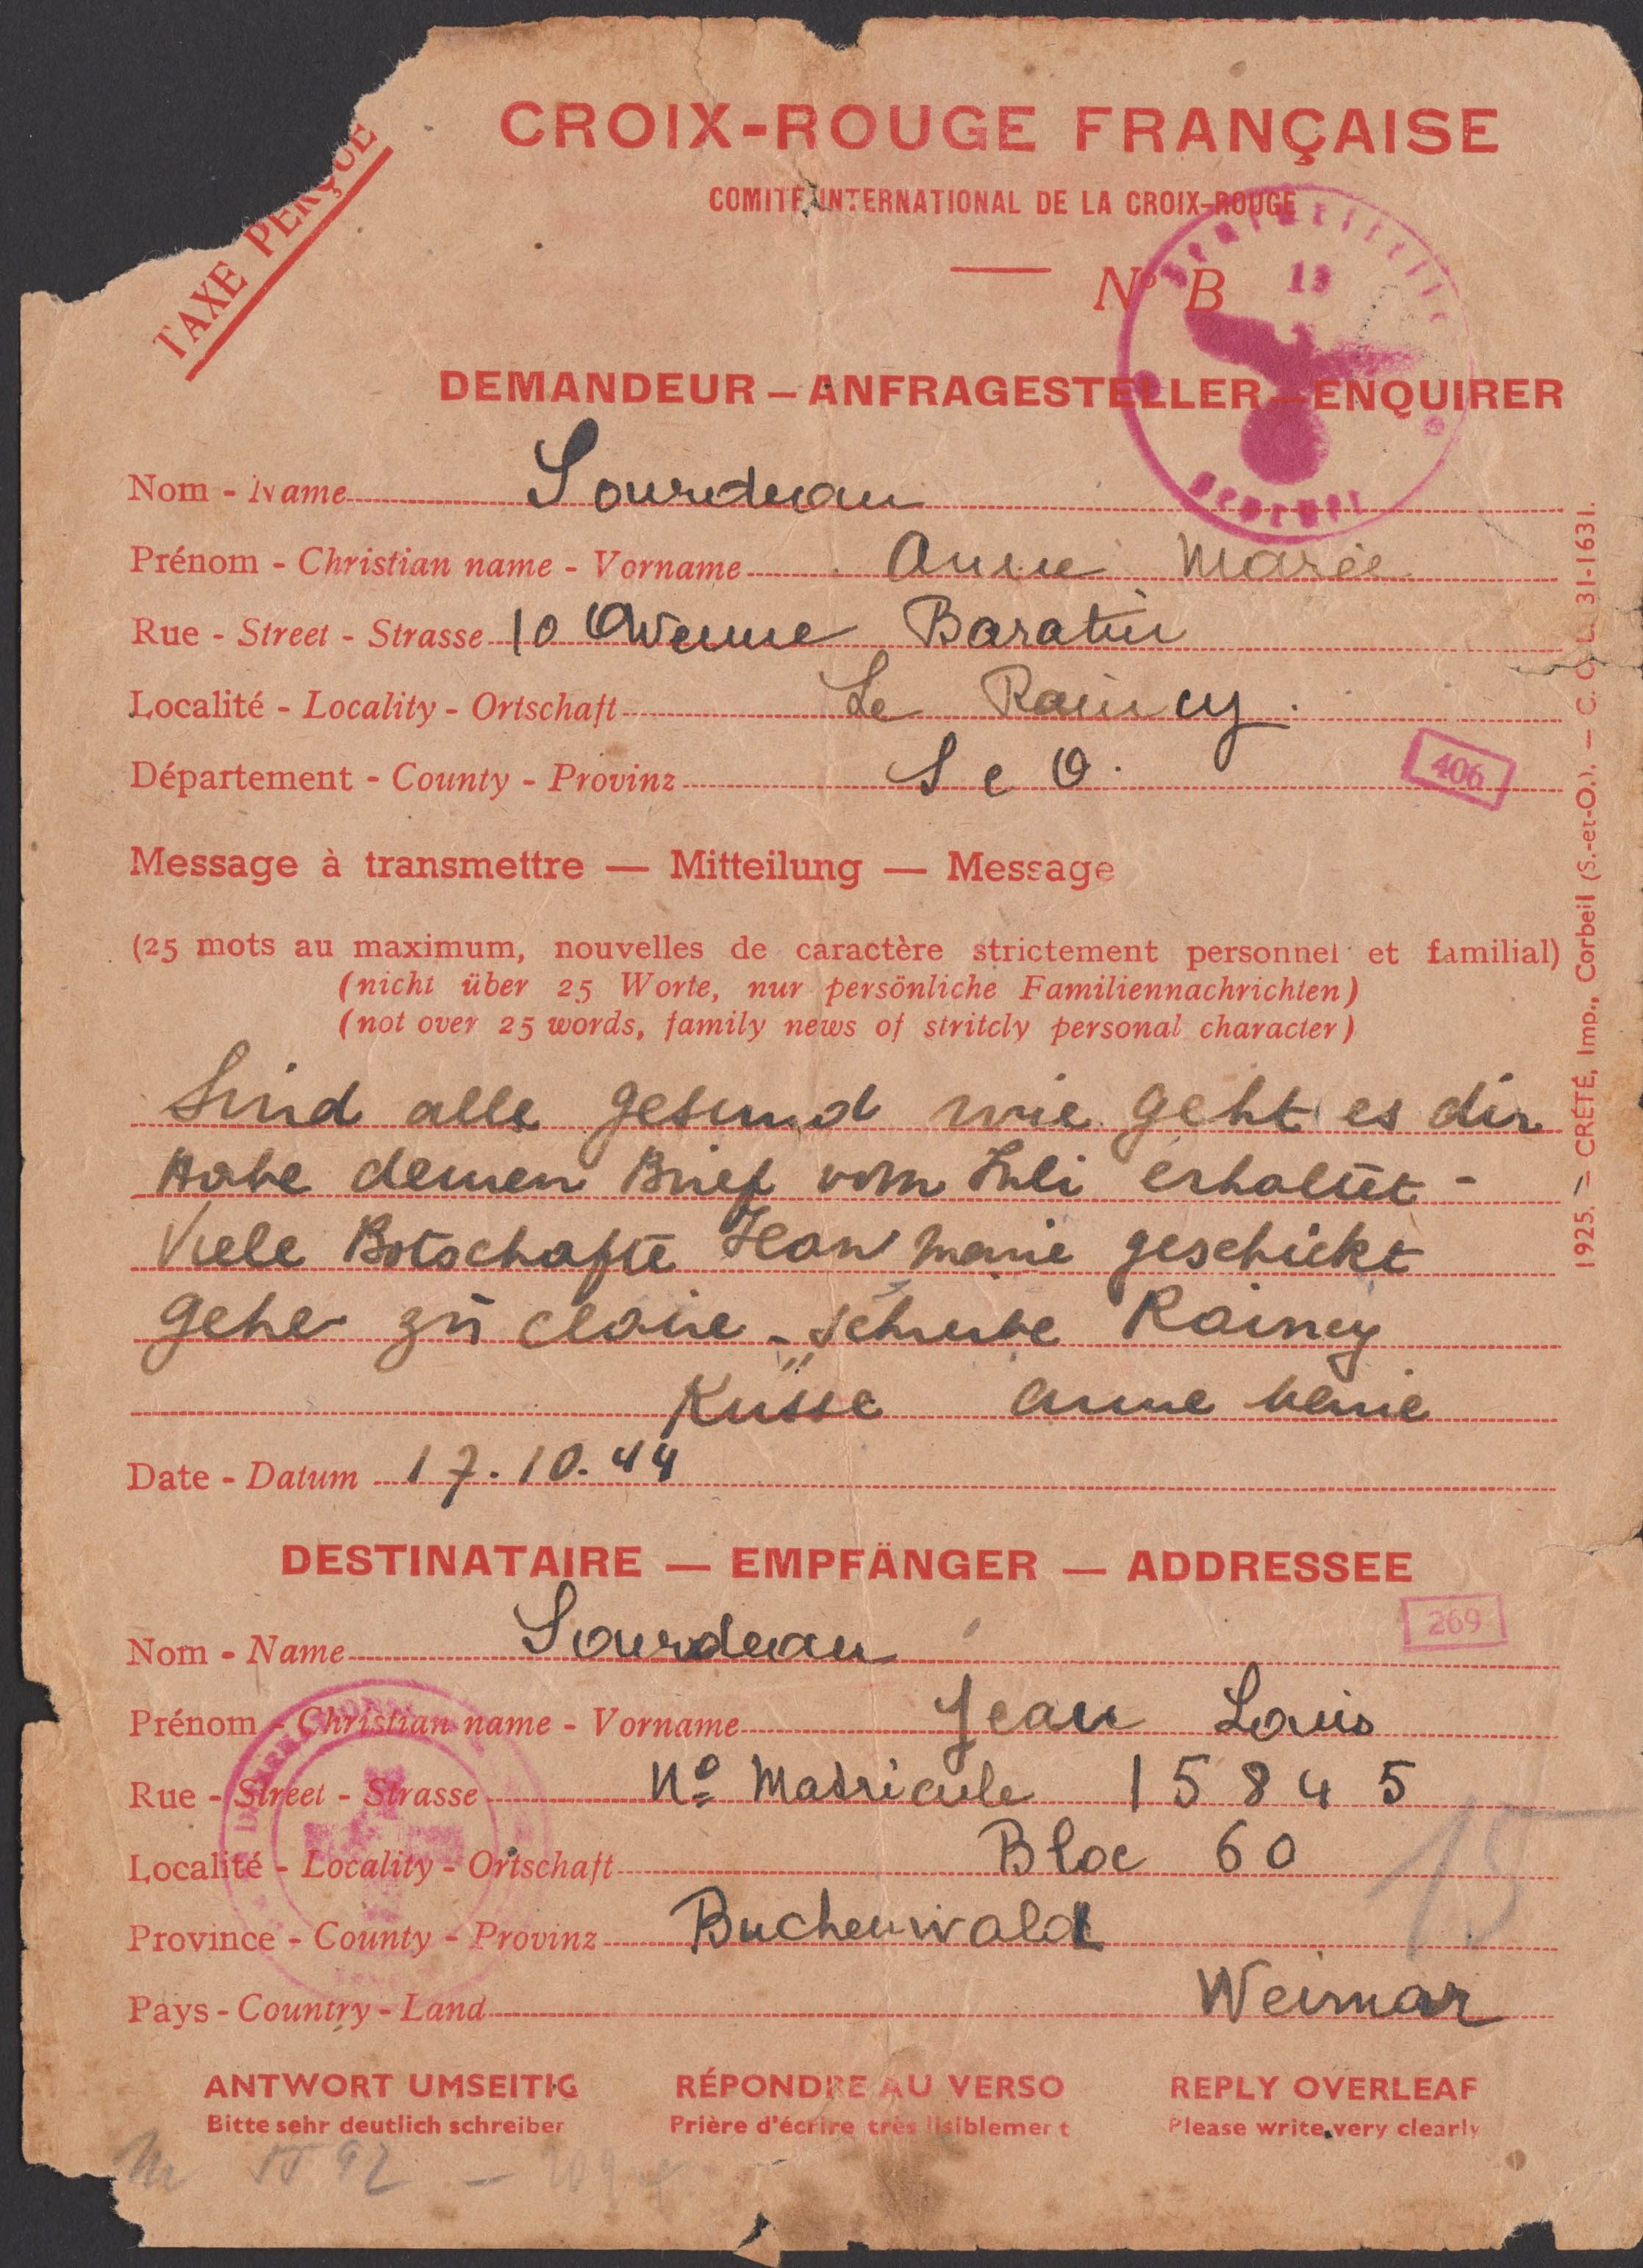 TAXE PERÇUE
CROIX-ROUGE FRANÇAISE
COMITÉ INTERNATIONAL DE LA CROIX-ROUGE
N° B
13
geprüft
DEMANDEUR – ANFRAGESTELLER – ENQUIRER
Nom - Name Sourdeau
Prénom - Christian name - Vorname Anne Marie
Rue - Street - Strasse 10 Avenue Baratin
Localité - Locality - Ortschaft Le Raincy.
Département - County - Provinz S e O.
406
Message à transmettre — Mitteilung — Message
(25 mots au maximum, nouvelles de caractère strictement personnel et familial)
(nicht über 25 Worte, nur persönliche Familiennachrichten)
(not over 25 words, family news of stritcly personal character)
Sind alle gesund wie geht es dir
Habe deinen Brief vom Juli erhaltet -
Viele Botschafte Jean marie geschickt
gehe zu claire - schreibe Raincy
Küsse anne marie
Date - Datum 17.10.44
DESTINATAIRE — EMPFÄNGER — ADDRESSEE
269
Nom - Name Sourdeau
Prénom - Christian name - Vorname Jean Louis
Rue - Street - Strasse N° Matricule 15845
Localité - Locality - Ortschaft Bloc 60
15
Province - County - Provinz Buchenwald
Pays - Country - Land Weimar
ANTWORT UMSEITIG RÉPONDRE AU VERSO REPLY OVERLEAF
Bitte sehr deutlich schreiber Prière d'écrire très lisiblement Please write very clearly
1925. — CRÉTÉ, Imp., Corbeil (S.-et-O.). — C. O. L. 31-1631.